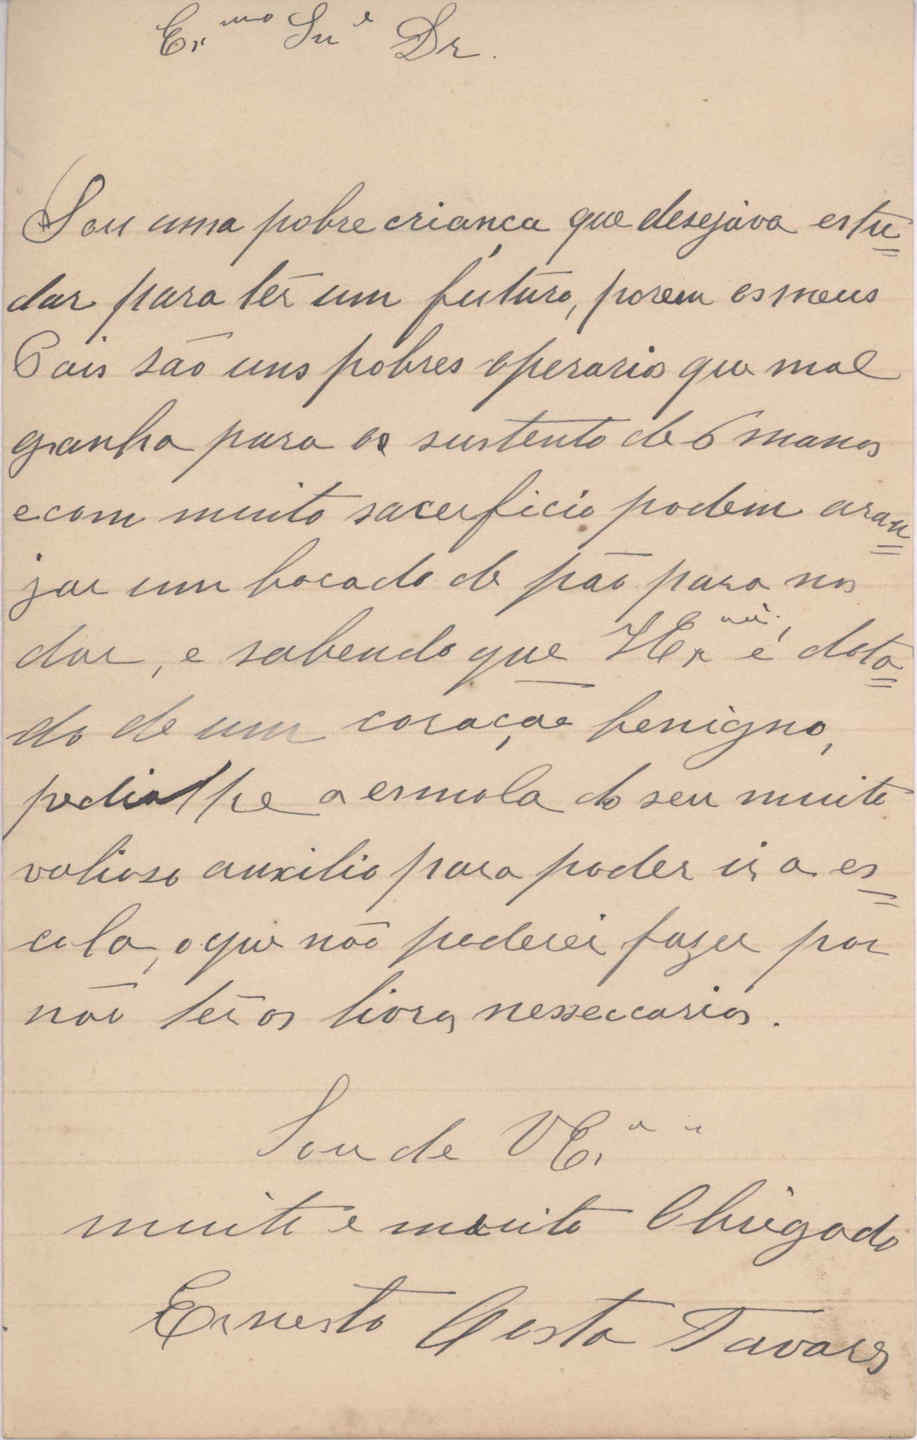 Ex.mo Snr Dr.
Sou uma pobre criança que desejáva estu=
dar para têr um futuro, porem os meus
Pais são uns pobres operarios que mal
ganha para o sustento de 6 manos
e com muito sacerficio podem aran=
jar um bocado de pão para nos
dar, e sabendo que é dota=
do de um coração benigno,
pedia lhe a esmola do seu muito
valioso auxilio para poder ir a es=
cola, o que não poderei fazer por
não têr os livros nesseccarios.
Sou de V Ex.a
muito e muito Obrigado
Ernesto Costa Tavares